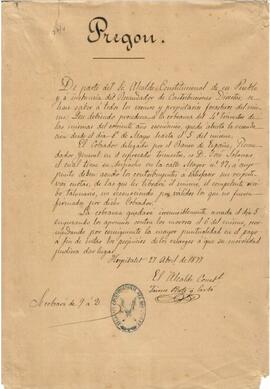 Pregon.
De parte del Sr. Alcalde Constitucional de este Pueblo
y a instancia del Recaudador de Contribuciones Directas, se
hace saber a todos los vecinos y propietarios forasteros del mis-
mo: Que debiendo procederse a la cobranza del 4º trimestre de
las mismas del corriente año económico, queda abierta la recauda-
cion desde el dia 1º de Mayo hasta el 5 del mismo.
El Cobrador delegado por el Banco de España, Recau-
dador general en el referido trimestre, es Dn. José
el cual tiene su despacho en la calle Mayor nº 77, a cuyo
punto deben acudir los contribuyentes a satisfacer sus respec-
tivas cuotas, de las que les librará el mismo, el competente recibo
talonario, no reconociendo por validos los que no fueren
firmados por dicho Cobrador.
La cobranza quedará irremisiblemente cerrada el dia 5
empezando los apremios contra los morosos el 6 del mismo, reco-
mendando por consiguiente la mayor puntualidad en el pago
a fin de evitar los perjuicios de los recargos a que su morosidad
pudiera dar lugar.
Hospitalet 27 Abril de 1877
El Alcalde Constl.
Jaime
Se cobrará de 9 a 2